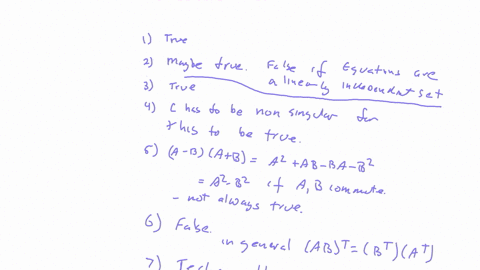 1) True
2) Maybe true. False if Equations are
a linearly independent set
3) True
4) C has to be non singular for
this to be true.
5) (A-B)(A+B) = A² + AB - BA - B²
= A² - B² if A, B commute.
- not always true.
6) False.
in general (AB)ᵀ = (Bᵀ)(Aᵀ)
7)